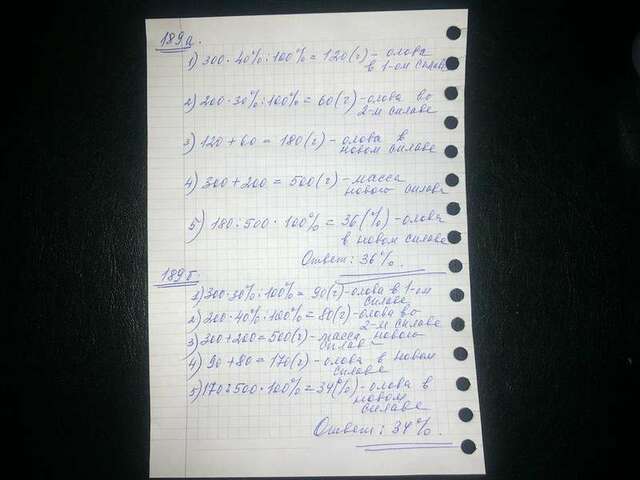 189а.
1) 300·40%:100% = 120(г) - олова
в 1-ом сплаве
2) 200·30%:100% = 60(г) - олова во
2-м сплаве
3) 120+60 = 180(г) - олова в
новом сплаве
4) 300+200 = 500(г) - масса
нового сплава
5) 180:500·100% = 36(%) - олова
в новом сплаве
Ответ: 36%.
189б.
1) 300·30%:100% = 90(г) - олова в 1-ом
сплаве
2) 200·40%:100% = 80(г) - олова во
2-м сплаве
3) 300+200=500(г) - масса нового
сплава
4) 90+80=170(г) - олова в новом
сплаве
5) 170:500·100% = 34(%) - олова в
новом
сплаве
Ответ: 34%.